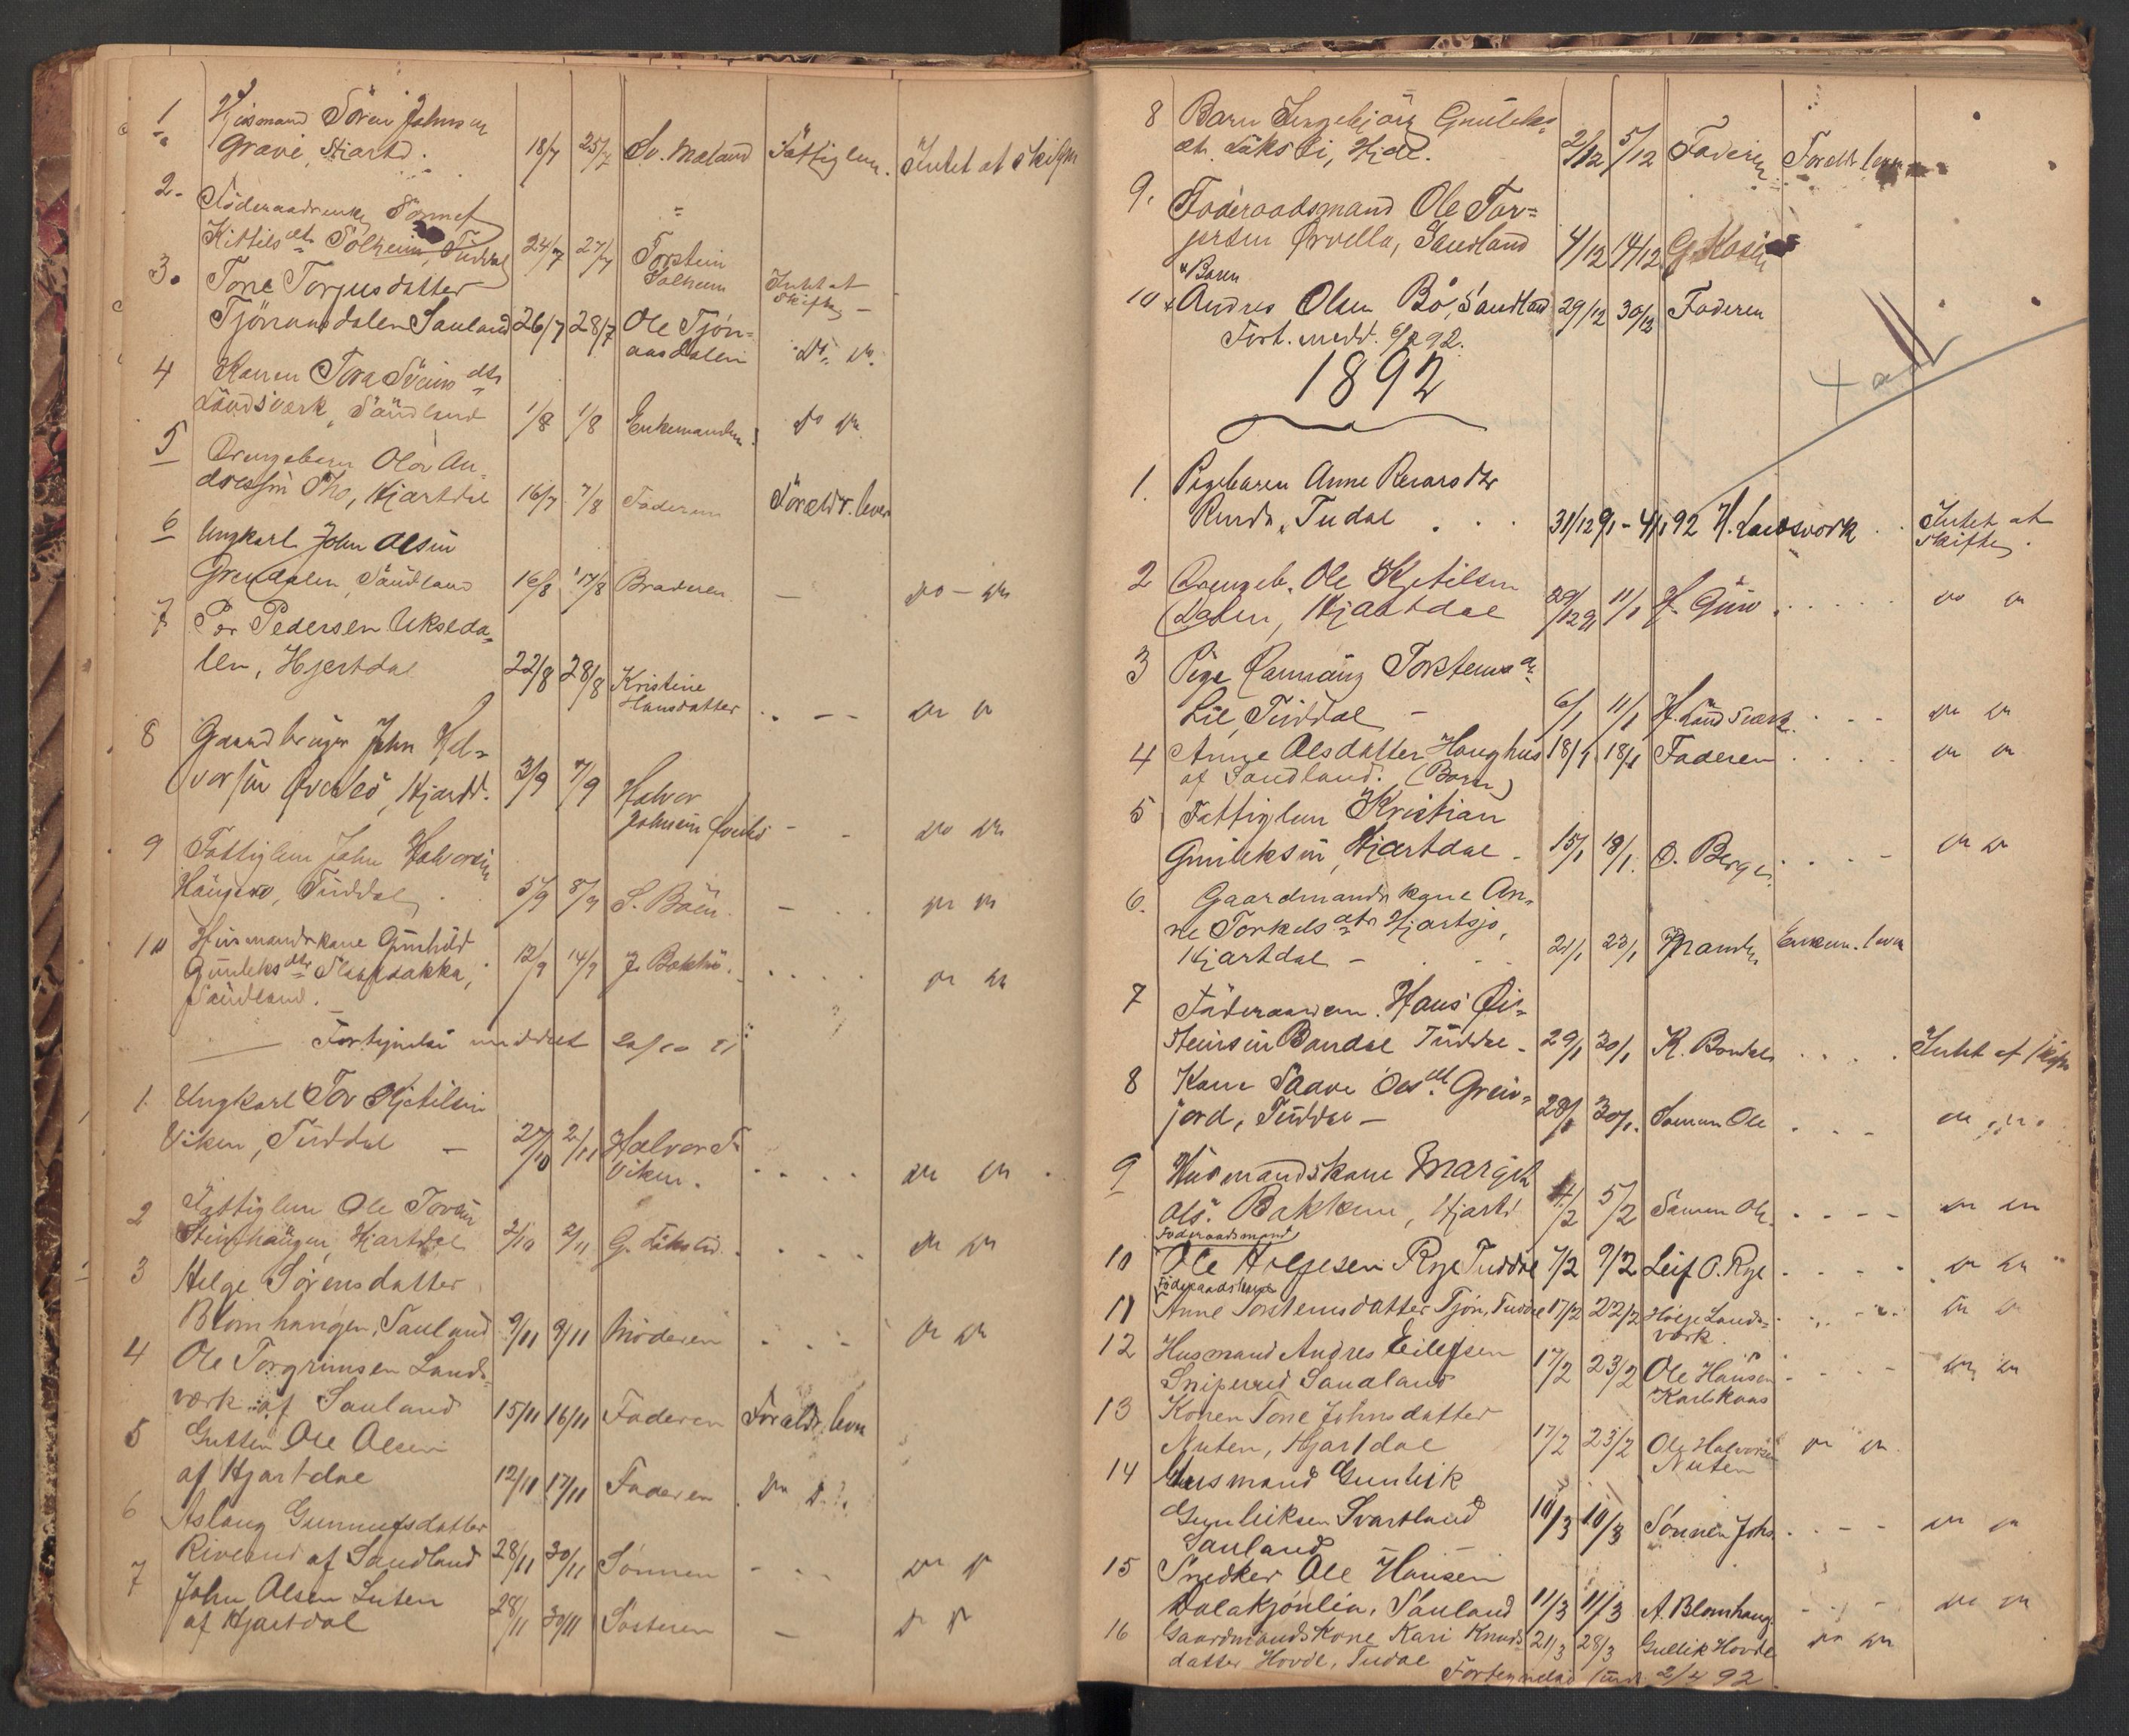 1 Husmand Sören Johnsen
Gravi, Hjartd. 18/7 25/7 Sv. Mæland Fattiglem. Intet at skifte
2. Föderaadsenke Sönnef
Kittilsdtr Solheim, Tuddal 24/7 27/7 Torstein Solheim Intet at skifte
3. Tone Torjusdatter
Tjönnaasdalen Sauland 26/7 28/7 Ole Tjön=
aasdalen do do
4 Konen Tora Sveinsdtr
Landsværk, Saudland 1/8 1/8 Enkemanden do do
5 Drengebarn Olav An-
dressen Tho, Hjartdal 16/7 7/8 Faderen Foreldr. lever
6 Ungkarl John Olsen
Grendalen, Saudland 16/8 17/8 Broderen — do - do
7 Per Pedersen Ukseda-
len, Hjertdal 22/8 28/8 Kristine
Hansdatter - - - do do
8 Gaardbruger John Hal-
vorsen Ørvebö, Hjartd. 3/9 7/9 Halvor
Johnsen - - do do
9 Fattiglem John Halvorsen
Haugen, Tuddal 5/9 8/9 S. Böen - . . do do
10 Husmandskone Gunhild
Gunleksdtr
Saudland. 12/9 14/9 J. Bakhus . . . . do do
Fortegnelse meddelt 20/10 91
1. Ungkarl Tov Kjetilsen
Viken, Tuddal — 27/10 2/11 Halvor T.
Viken. . . . . do do
2 Fattiglem Ole Tovsen
Steinhaugen, Hjartdal 2/10 2/11 G. Lökslid . . . . do do
3 Helge Sörensdatter
Blomhaugen, Sauland 9/11 9/11 Moderen . . - do do
4 Ole Torgrimsen Lands-
værk af Sauland 15/11 16/11 Faderen Foreldr. leve
5 Gutten Ole Olsen
af Hjartdal 12/11 17/11 Faderen do do
6 Aslaug Gunnufsdatter
af Saudland 28/11 30/11 Sönnen - - - do do
7 John Olsen Luten
af Hjartdal 28/11 30/11 Sösteren — do do
8 Barn Ingebjörg Gunleks-
dt. Löksli, Hjdl. 2/12 5/12 Faderen Foreldr. leve
9. Föderaadsmand Ole Tor=
jersen Ørvella, Saudland 4/12 14/12
Barn
10 Andres Olsen Bö, Saudland 29/12 30/12 Faderen
Fort. medd. 92.
1892
1. Pigebarn Anne
Tudal . . . 31/12 91 - 4/1 92 H. Landsvork . . Intet at
skifte.
2 Drengeb. Ole Kjetilsen
Dalen, Hjartdal 29/12 91 11/1 . . . . . do do
3 Pige Rannaug Torstensd.
Lie, Tuddal — 6/1 11/1 H. Landsværk. . - - do do
4 Anne Olsdatter Haughus 18/1 18/1 Faderen . . . . do do
af Saudland. (Barn)
5 Fattiglem Kristian
Gunleksen, Hjartdal - 15/1 18/1. O. Berge. . . . - do do
6. Gaardmandskone An-
ne Torkelsdtr Hjartsjö,
Hjartdal — 21/1 23/1 Manden Enkem. leve
7 Föderaadsm. Hans Øi-
steinsen Bondal Tuddal - 29/1 30/1 K. Bondal . . . . Intet at skifte
8 Kone Saave Olsdt. Greiv-
jord, Tuddal — 28/1 30/1. Sönnen Ole . - - do do
9 Husmandskone Margit
Ols. Bakken, Hjartd 4/2 5/2 Sönnen Ole. - - - - do do
Föderaadsmand
10 Ole Helgesen Rye Tuddal 7/2 9/2 Leif O. Rye - - - - do do
Föderaadskone
11 Anne Torstensdatter Tjön, Tuddal 17/2 22/2 Helge Lands-
værk. do do
12 Husmand Andres Eilefsen
Sniperud Saudland 17/2 23/2 Ole Hansen
Karlskaas - - - - do do
13 Konen Tone Johnsdatter
Nuten, Hjartdal 17/2 23/2 Ole Halvorsen
Nuten do do
14 Husmand Gunleik
Gunleiksen Svartland
Sauland 10/3 10/3 Sönnen Johs . - - - do do
15 Snedker Ole Hansen
Dalakjönlia, Sauland 11/3 11/3 A. Blomhaug - - - do do
16 Gaardmandskone Kari Knuds-
datter Hovde, Tudal 21/3 28/3 Gullik Hovde do do
Fortegnelse 2/4 92.